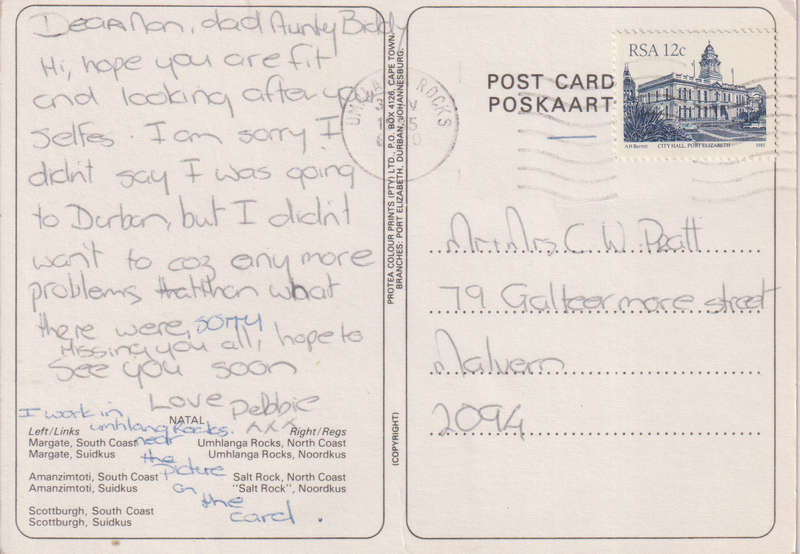 Dear Mom, dad Aunty Biddy
Hi, hope you are fit
and looking after your
selfes. I am sorry I
didn't say I was going
to Durban, but I didn't
want to coz any more
problems than what
there were, sorry
Missing you all, hope to
See you soon
Love Debbie
XXX
I work in
umhlanga Rocks.
near
the
picture
on
the
card.
NATAL
Left/Links Right/Regs
Margate, South Coast Umhlanga Rocks, North Coast
Margate, Suidkus Umhlanga Rocks, Noordkus
Amanzimtoti, South Coast Salt Rock, North Coast
Amanzimtoti, Suidkus "Salt Rock", Noordkus
Scottburgh, South Coast
Scottburgh, Suidkus
PROTEA COLOUR PRINTS (PTY) LTD., P.O. BOX 4126, CAPE TOWN.
BRANCHES: PORT ELIZABETH, DURBAN, JOHANNESBURG.
(COPYRIGHT)
ROCKS
POST CARD
POSKAART
RSA 12c
CITY HALL, PORT ELIZABETH
Mr + Mrs C. W. Pratt
79 Galteermore street
Malvern
2094